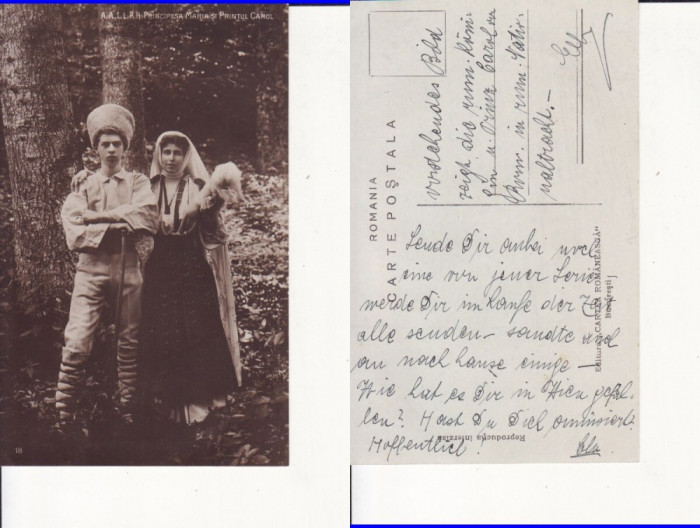 A.A.L.L.R.R. PRINCIPESA MARIA ȘI PRINȚUL CAROL
18
ROMANIA
CARTE POȘTALA
Editura „CARTEA ROMÂNEASCĂ"
București
Reproducția interzisă
Vorstehendes Bild
zeigt die rum. Köni-
gin u Prinz Carol von
Rum. in rum. Natio-
naltracht.—
Sende Dir anbei noch
eine von jener Serie
werde Dir im Laufe der Zeit
alle senden – sandte auch
an nach hause einige –
Wie hat es Dir in Wien gefal-
len? Hast Du Dich amüsiert?
Hoffentlich!